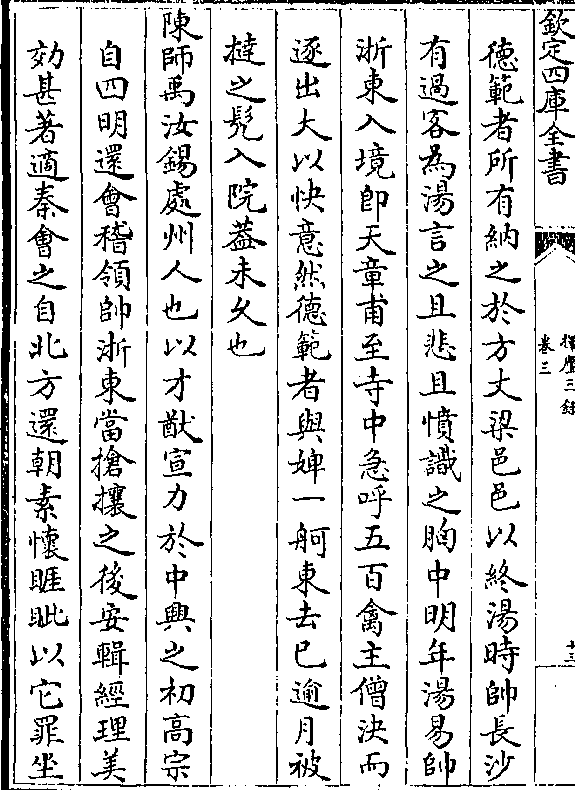 欽定四庫全書
揮麈三録
卷三
十三
德範者所有納之於方丈梁邑邑以終湯時帥長沙
有過客為湯言之且悲且憤識之胸中明年湯易帥
浙東入境即天章甫至寺中急呼五百禽主僧決而
逐出大以快意然德範者與婢一舸東去已逾月被
撻之髡入院葢未久也
陳師禹汝錫處州人也以才猷宣力於中興之初高宗
自四明還會稽領帥浙東當搶攘之後安輯經理美
効甚著適秦會之自北方還朝素懷睚眦以它罪坐